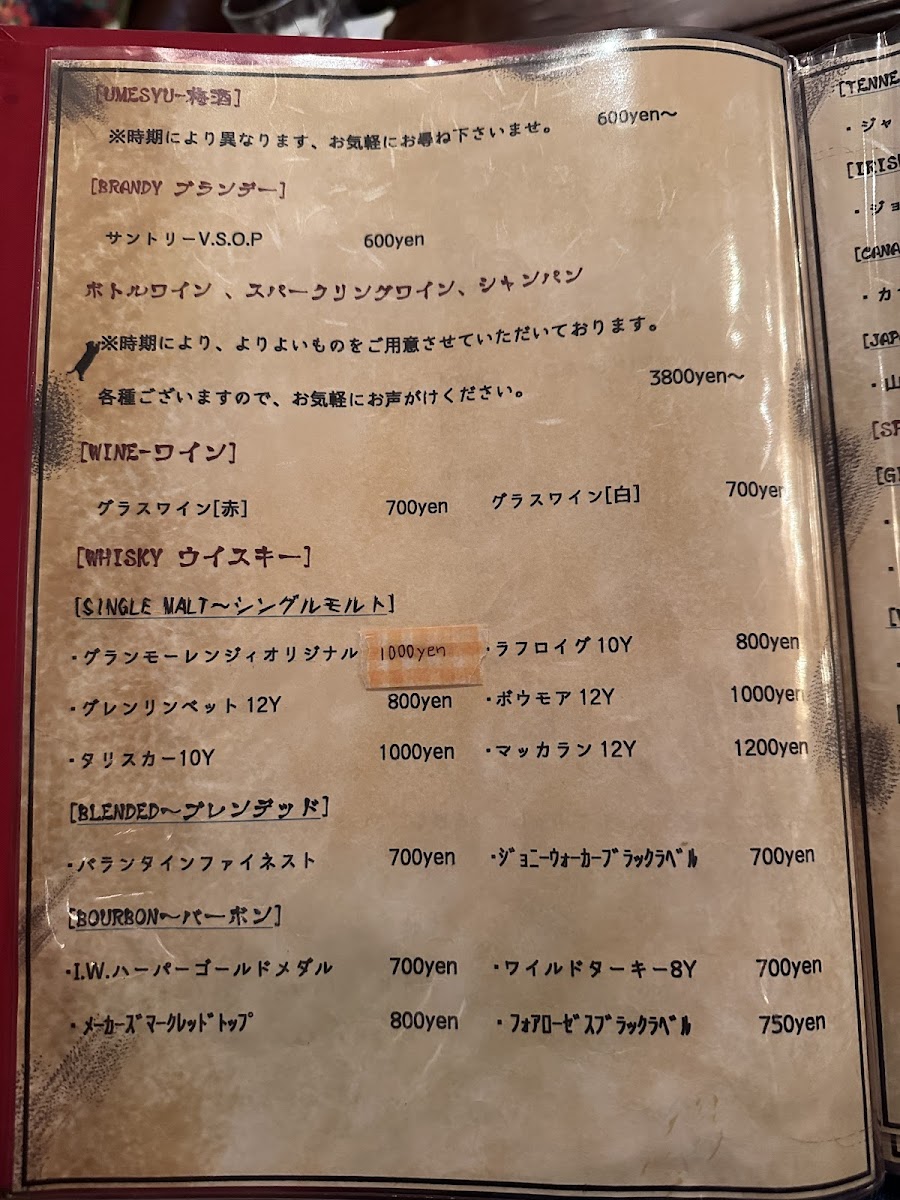 [UMESYU-梅酒]
※時期により異なります、お気軽にお尋ね下さいませ。 600yen～
[BRANDY ブランデー]
サントリーV.S.O.P 600yen
ボトルワイン 、スパークリングワイン、シャンパン
※時期により、よりよいものをご用意させていただいております。
各種ございますので、お気軽にお声がけください。 3800yen～
[WINE-ワイン]
グラスワイン[赤] 700yen グラスワイン[白] 700yen
[WHISKY ウイスキー]
[SINGLE MALT～シングルモルト]
・グランモーレンジィオリジナル 1000yen ・ラフロイグ 10Y 800yen
・グレンリンベット 12Y 800yen ・ボウモア 12Y 1000yen
・タリスカー10Y 1000yen ・マッカラン 12Y 1200yen
[BLENDED～ブレンデッド]
・バランタインファイネスト 700yen ・ｼﾞｮﾆｰｳｫｰｶｰﾌﾞﾗｯｸﾗﾍﾞﾙ 700yen
[BOURBON～バーボン]
・I.W.ハーパーゴールドメダル 700yen ・ワイルドターキー8Y 700yen
・ﾒｰｶｰｽﾞﾏｰｸﾚｯﾄﾞﾄｯﾌﾟ 800yen ・ﾌｫｱﾛｰｾﾞｽﾌﾞﾗｯｸﾗﾍﾞﾙ 750yen
[TENNE
・ジャ
[IRIS
・ジョ
[CANA
・カ
[JAP
・山